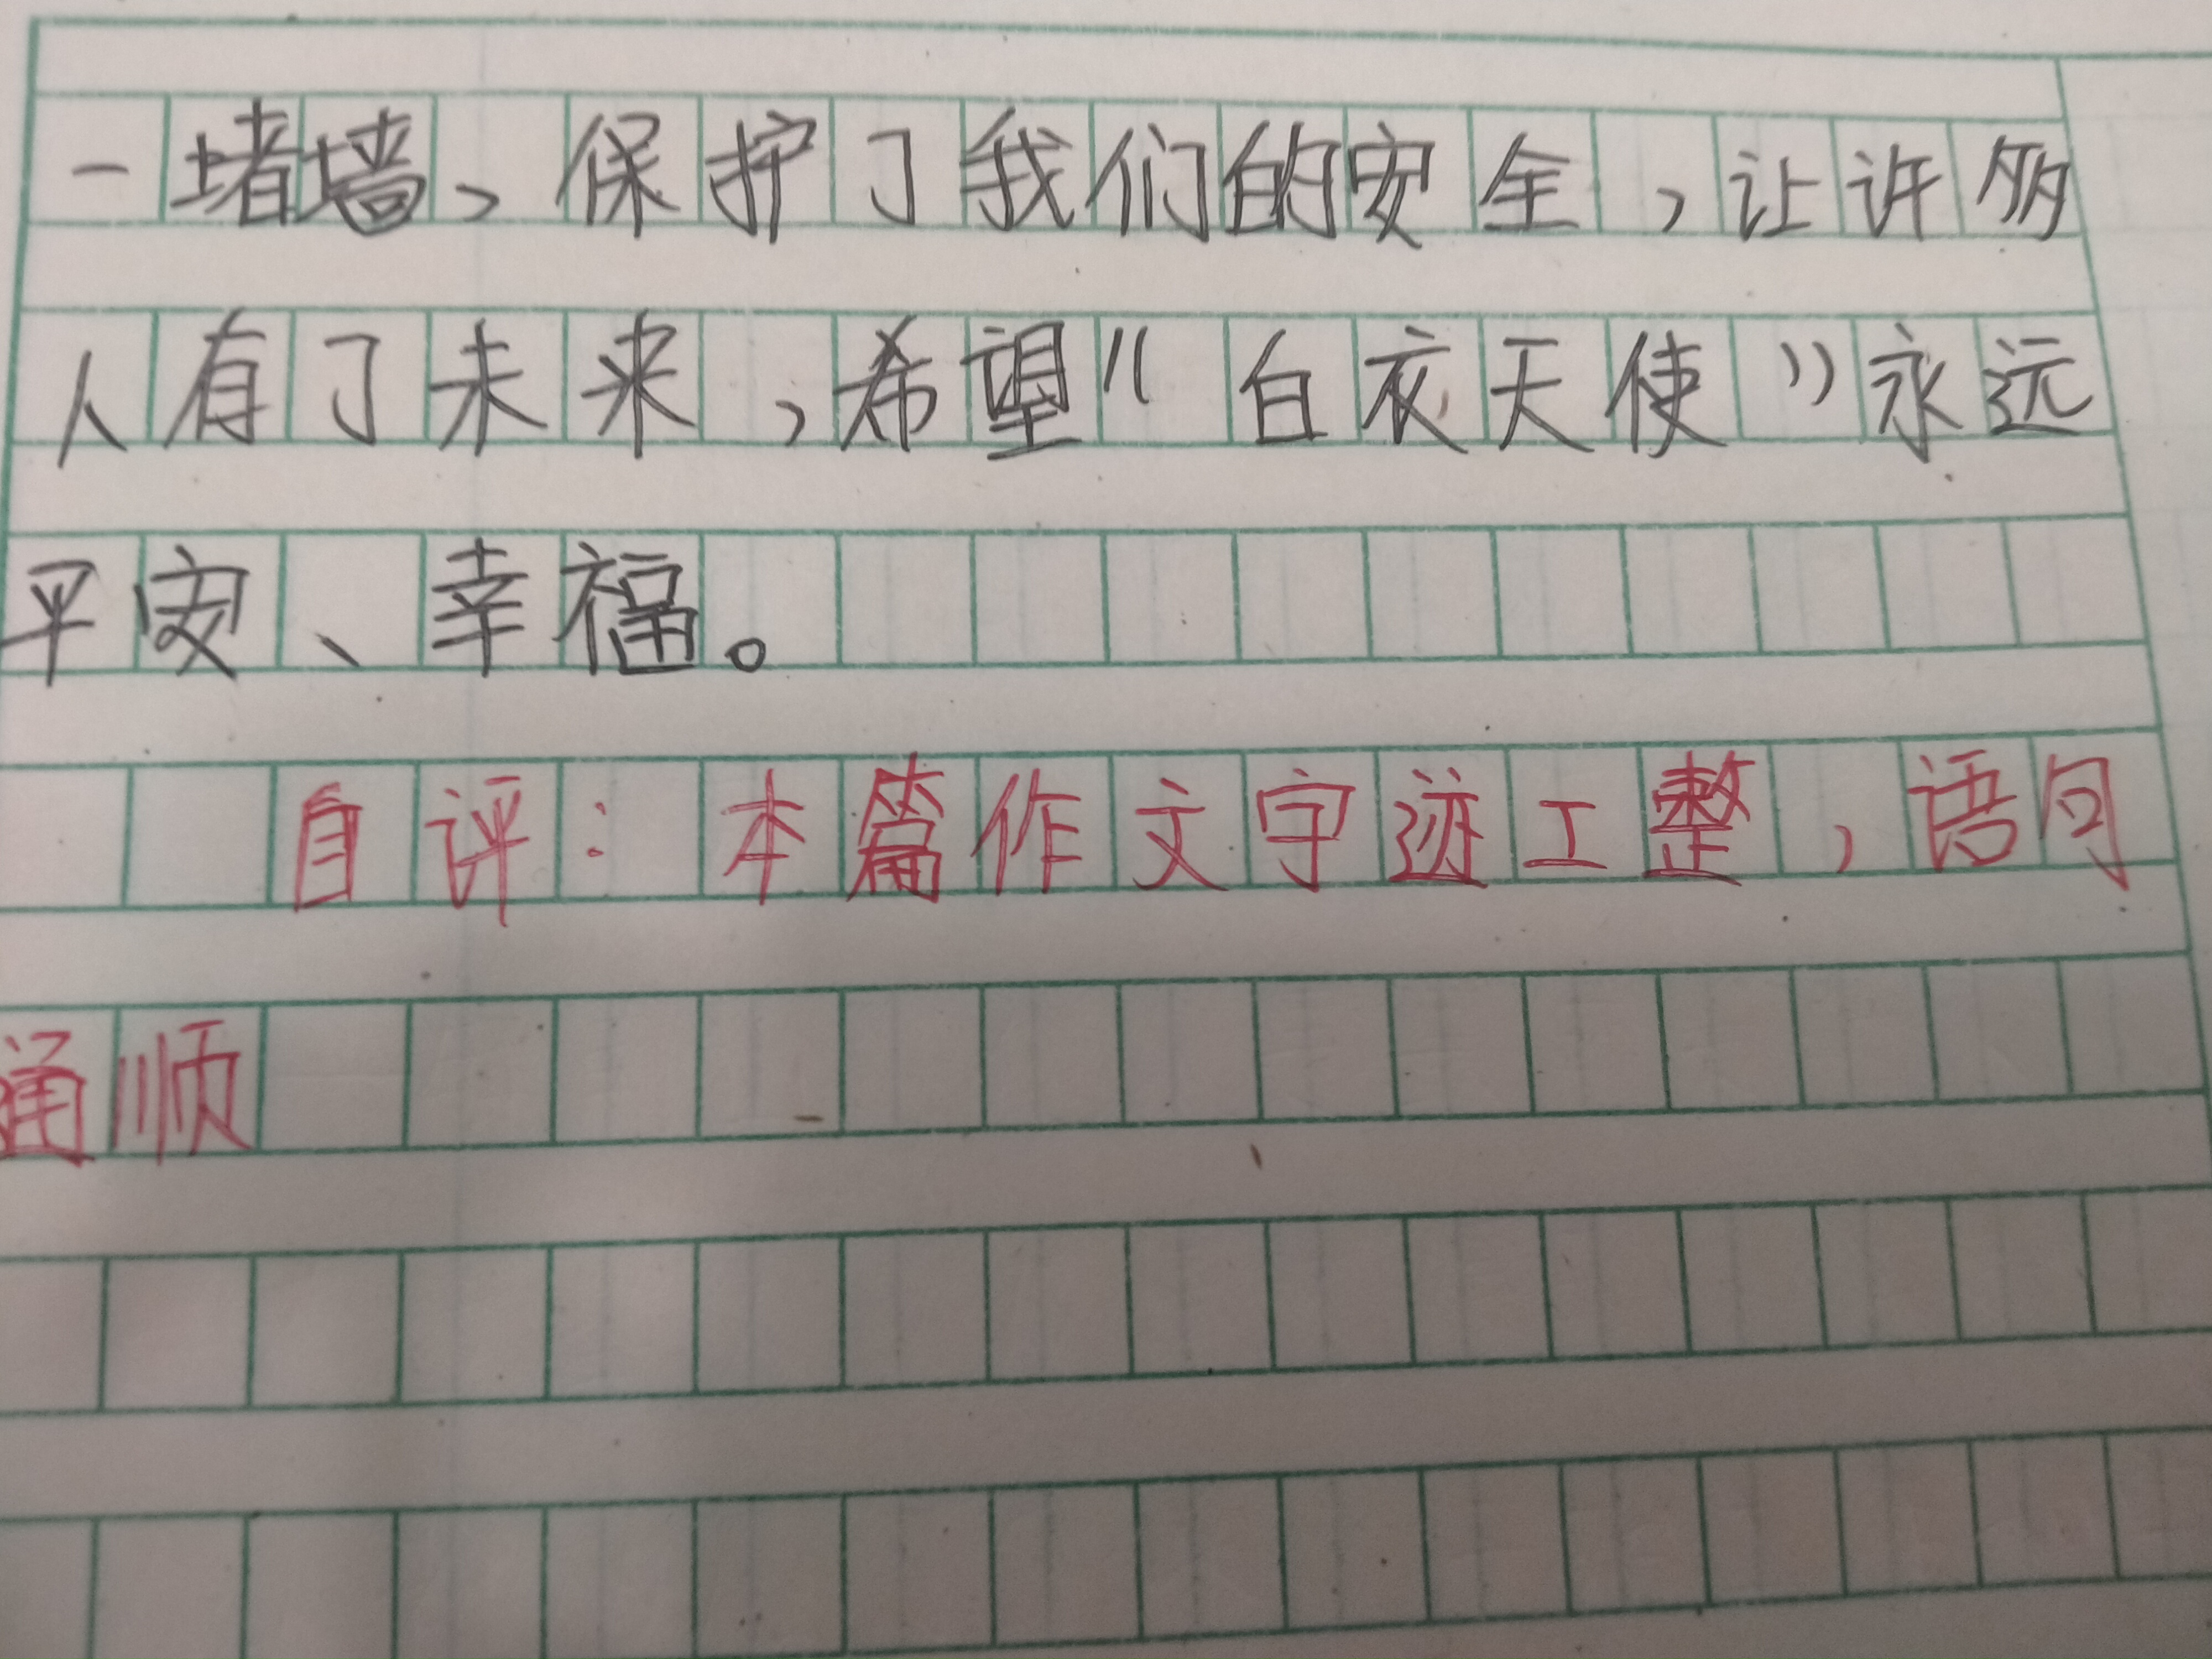 一堵墙,保护了我们的安全,让许多
人有了未来,希望“白衣天使”永远
平安、幸福。
自评:本篇作文字迹工整,语句
通顺